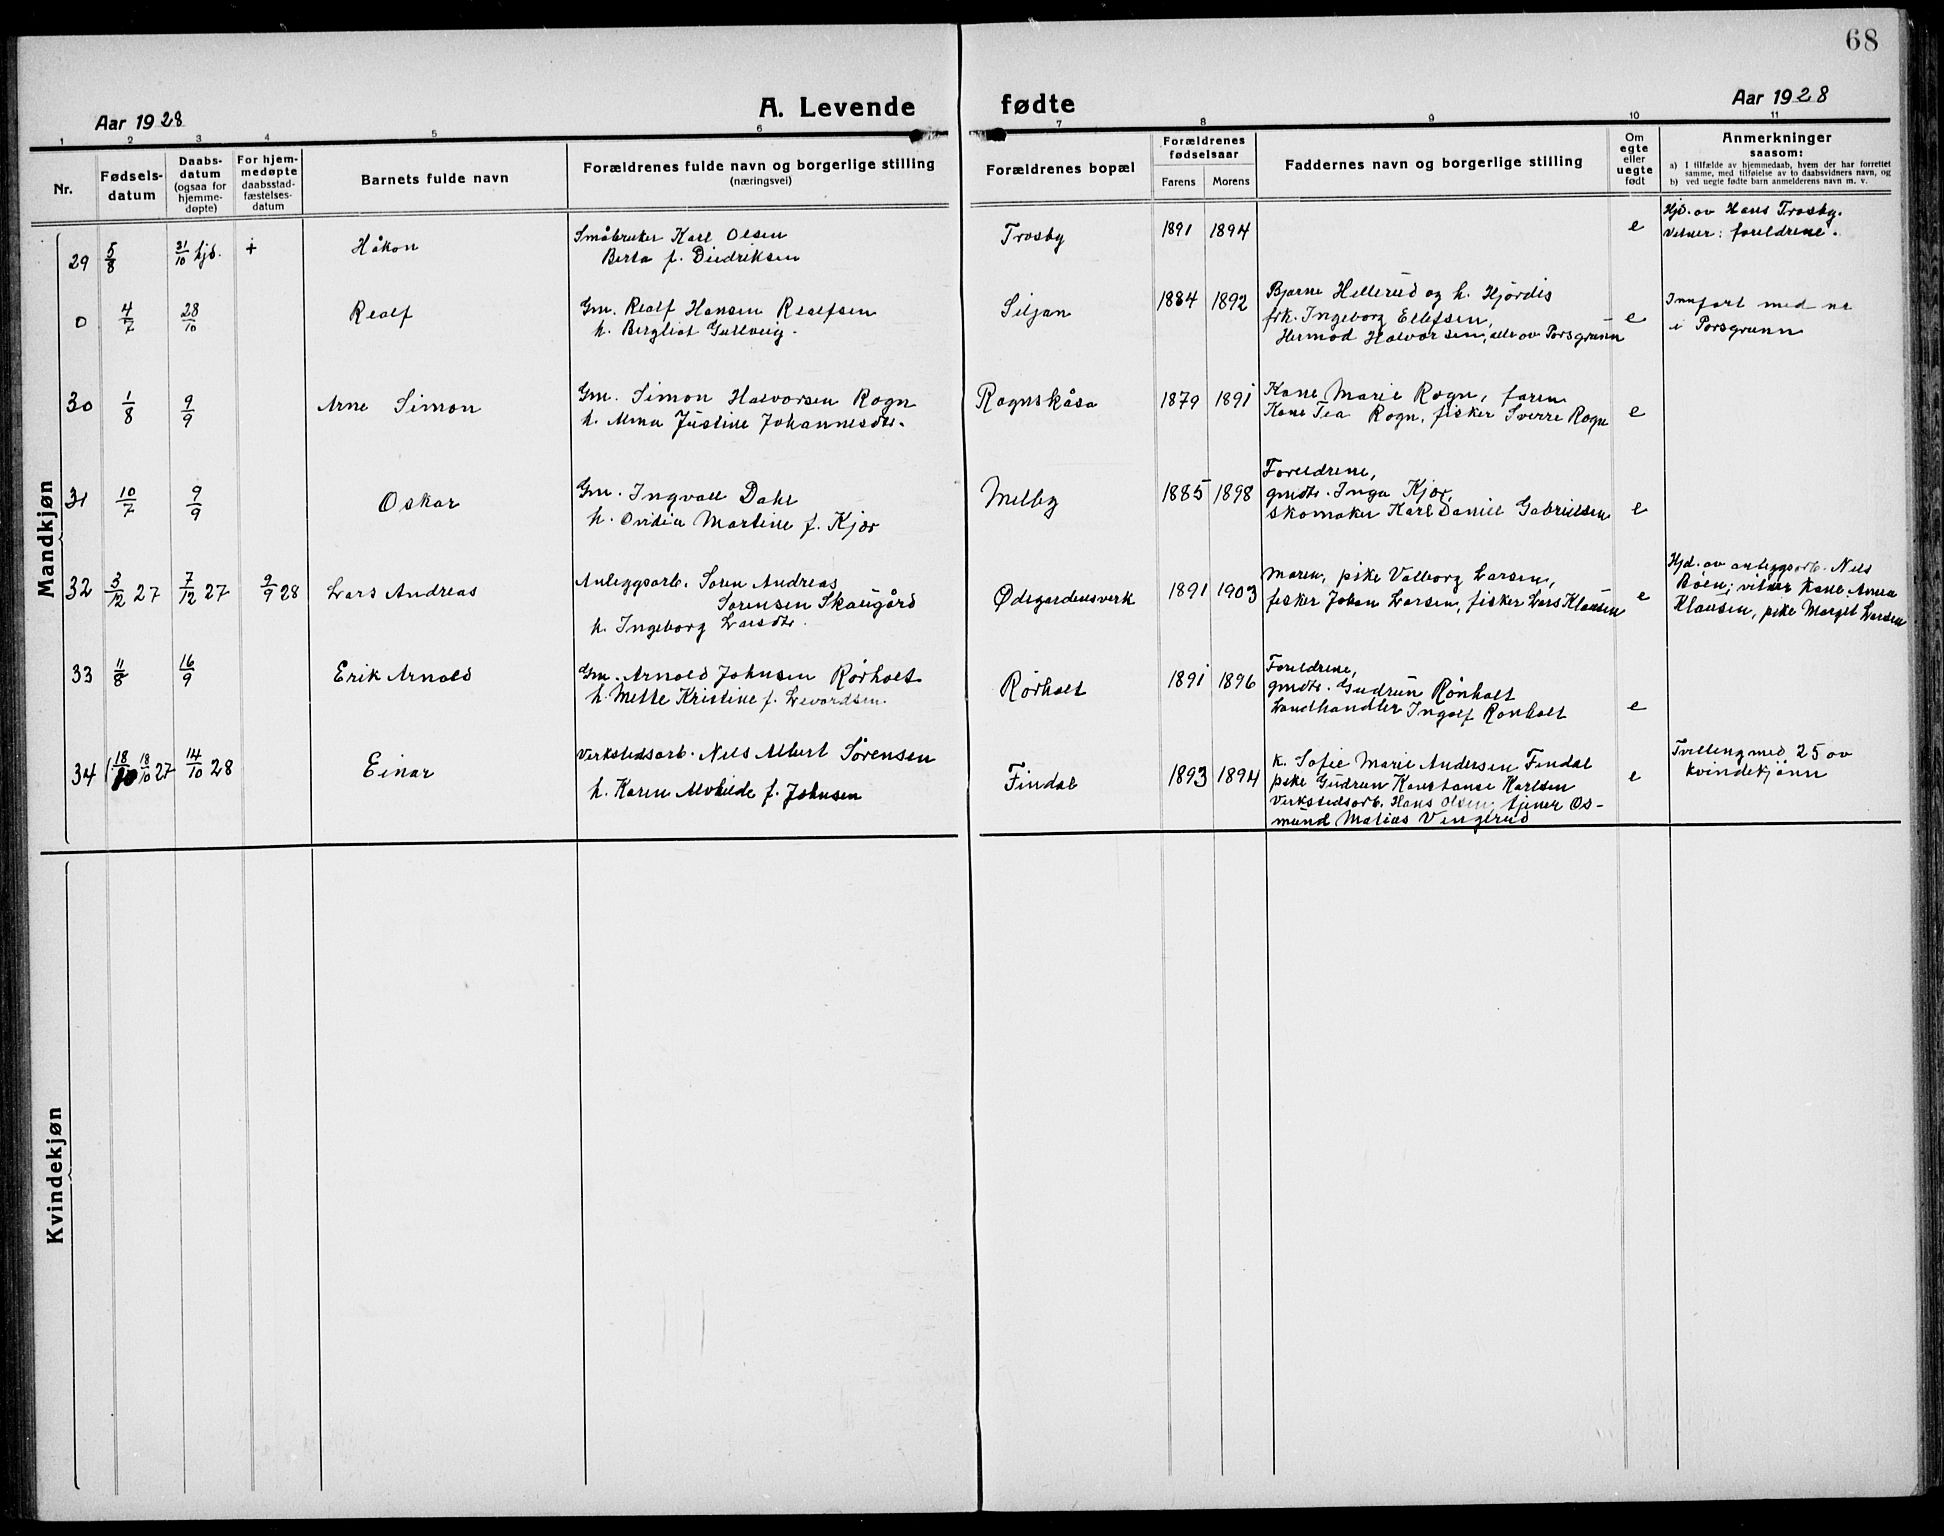 68
Aar 1928
A. Levende fødte
Aar 1928
1 2 3 4 5 6 7 8 9 10 11
Nr.
Fødsels-
datum
Daabs-
datum
(ogsaa for
hjemme-
døpte)
For hjem-
medøpte
daabsstad-
fæstelses-
datum
Barnets fulde navn
Forældrenes fulde navn og borgerlige stilling
(næringsvei)
Forældrenes bopæl
Forældrenes
fødselsaar
Farens Morens
Faddernes navn og borgerlige stilling
Om
egte
eller
uegte
født
Anmerkninger
saasom:
a) I tilfælde av hjemmedaab, hvem der har forrettet
samme, med tilføielse av to daabsvidners navn, og
b) ved uegte fødte barn anmelderens navn m. v.
Mandkjøn
29 5/8 31/10 hjd. + Håkon
Småbruker Karl Olsen
Berta f. Diedriksen
Trosby 1891 1894 e
Hjd. av Hans Trosby.
Vitner: foreldrene.
0 4/7 28/10 Realf
Gm. Realf Hansen Realfsen
h. Bergliot Gullveig.
Siljan 1884 1892
Bjarne Hellerud og h. Hjördis
frk. Ingeborg Ellefsen,
Hermod Halvorsen, alle av Porsgrunn
e
Innført med nr
i Porsgrunn
30 1/8 9/9 Arne Simon
Gm. Simon Halvorsen Rogn
h. Alma Justine Johannesdtr.
Rognskåsa 1879 1891
Kone Marie Rogn, faren
Kone Tea Rogn, fisker Sverre Rogn
e
31 10/7 9/9 Oskar
Gm. Ingvall Dahl
h. Ovidia Martine f. Kjær
Melby 1885 1898
Foreldrene,
gmdtr. Inga Kjær,
skomaker Karl Daniel Gabrielsen
e
32 3/12 27 7/12 27 9/9 28 Lars Andreas
Anleggsarb. Søren Andreas
Sørensen Skaugård
h. Ingeborg Larsdtr.
Ødegardensverk 1891 1903
Moren, pike Valborg Larsen,
fisker Johan Larsen, fisker Lars Klausen
e
Hjd. av anleggsarb. Nels
Böen; vitner Kone Anna
Klausen, pike Margit Larsen
33 11/8 16/9 Erik Arnold
Gm. Arnold Johnsen Rørholt
h. Mette Kristine f. Levordsen.
Rørholt 1891 1896
Foreldrene,
gmdtr. Gudrun Rønholt
Landhandler Ingolf Rønholt
e
34 18/10 18/10 27 14/10 28 Einar
Verkstedsarb. Nils Albert Sørensen
h. Karen Alvhilde f. Johnsen
Findal 1893 1894
k. Sofie Marie Andersen Findal
pike Gudrun Konstanse Karlsen
Verkstedsarb. Hans Olsen, tjener Os-
mund Matias Vingerud
e
Tvilling med 25 av
kvindekjønn
Kvindekjøn